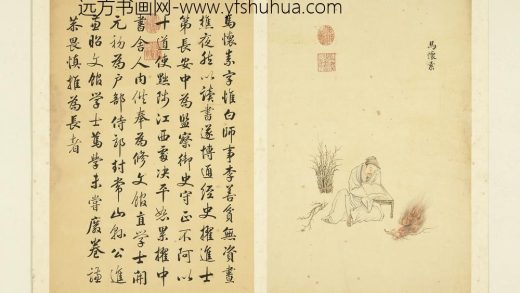 远方书画网-www.yfshuhua.com
馬懷素
馬懷素字惟白師事李善貧無資晝
樵夜然以讀書遂博通經史擢進士
第長安中為監察御史守正不阿以
十道使黜陟江西處決平恕累擢中
書舍人內供奉為修文館直學士開
元初為戶部侍郎封常山縣公進
兼昭文館學士篤學未嘗廢卷謙
恭畏慎推為長者